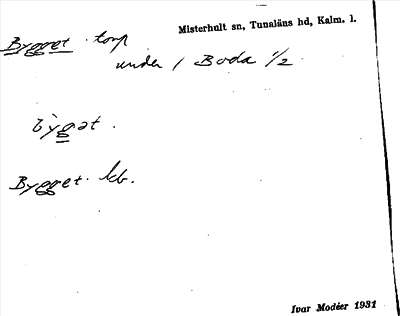 Misterhult sn, Tunaläns hd, Kalm. l.
Bygget torp
under 1 Boda 1/2
bỳgət.
Bygget kb.
Ivar Modéer 1931